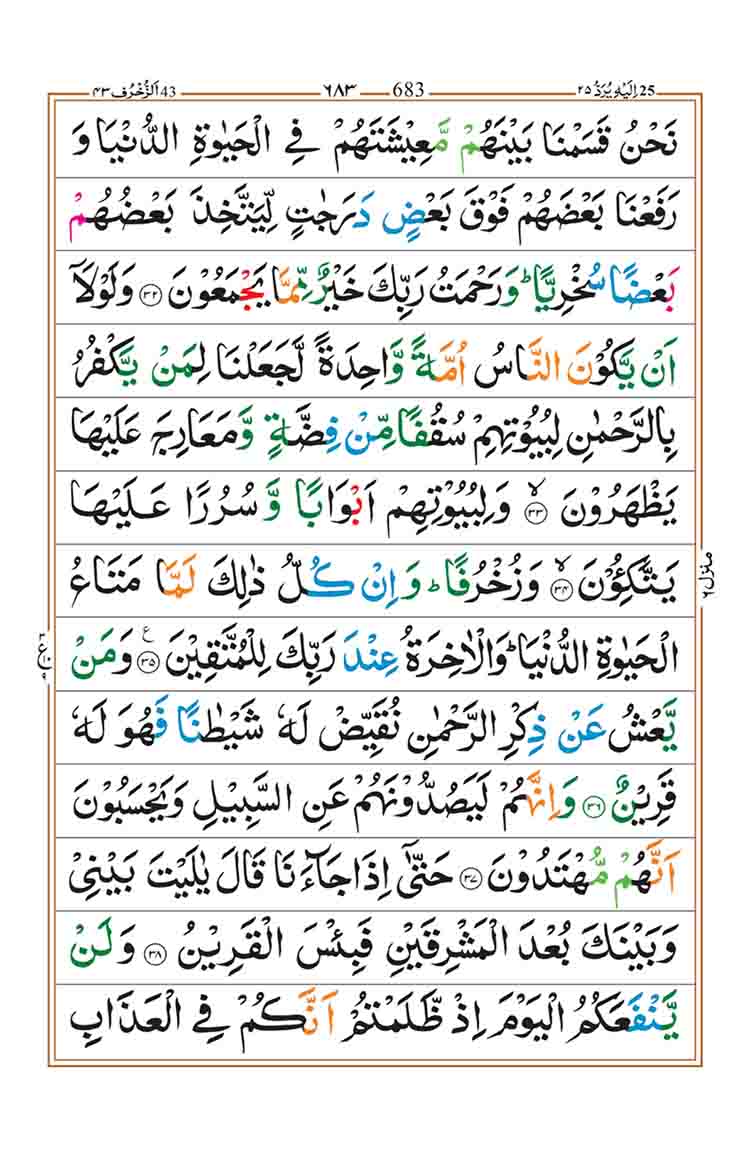 25 اِلَيْهِ يُرَدُّ ٢٥
683 ٦٨٣
43 اَلزُّخْرُف ٤٣
نَحْنُ قَسَمْنَا بَيْنَهُمْ مَّعِيْشَتَهُمْ فِي الْحَيٰوةِ الدُّنْيَا وَ
رَفَعْنَا بَعْضَهُمْ فَوْقَ بَعْضٍ دَرَجٰتٍ لِّيَتَّخِذَ بَعْضُهُمْ
بَعْضًا سُخْرِيًّا ؕ وَرَحْمَتُ رَبِّكَ خَيْرٌ مِّمَّا يَجْمَعُوْنَ ﴿٣٢﴾ وَلَوْلَاۤ
اَنْ يَّكُوْنَ النَّاسُ اُمَّةً وَّاحِدَةً لَّجَعَلْنَا لِمَنْ يَّكْفُرُ
بِالرَّحْمٰنِ لِبُيُوْتِهِمْ سُقُفًا مِّنْ فِضَّةٍ وَّمَعَارِجَ عَلَيْهَا
يَظْهَرُوْنَ ۙ﴿٣٣﴾ وَلِبُيُوْتِهِمْ اَبْوَابًا وَّ سُرُرًا عَلَيْهَا
يَتَّكِئُوْنَ ۙ﴿٣٤﴾ وَزُخْرُفًا ؕ وَ اِنْ كُلُّ ذٰلِكَ لَمَّا مَتَاعُ
الْحَيٰوةِ الدُّنْيَا ؕ وَالْاٰخِرَةُ عِنْدَ رَبِّكَ لِلْمُتَّقِيْنَ ﴿٣٥﴾ ع وَمَنْ
يَّعْشُ عَنْ ذِكْرِ الرَّحْمٰنِ نُقَيِّضْ لَهٗ شَيْطٰنًا فَهُوَ لَهٗ
قَرِيْنٌ ﴿٣٦﴾ وَاِنَّهُمْ لَيَصُدُّوْنَهُمْ عَنِ السَّبِيْلِ وَيَحْسَبُوْنَ
اَنَّهُمْ مُّهْتَدُوْنَ ﴿٣٧﴾ حَتّٰۤى اِذَا جَآءَنَا قَالَ يٰلَيْتَ بَيْنِيْ
وَبَيْنَكَ بُعْدَ الْمَشْرِقَيْنِ فَبِئْسَ الْقَرِيْنُ ﴿٣٨﴾ وَلَنْ
يَّنْفَعَكُمُ الْيَوْمَ اِذْ ظَّلَمْتُمْ اَنَّكُمْ فِي الْعَذَابِ
منزل ٦